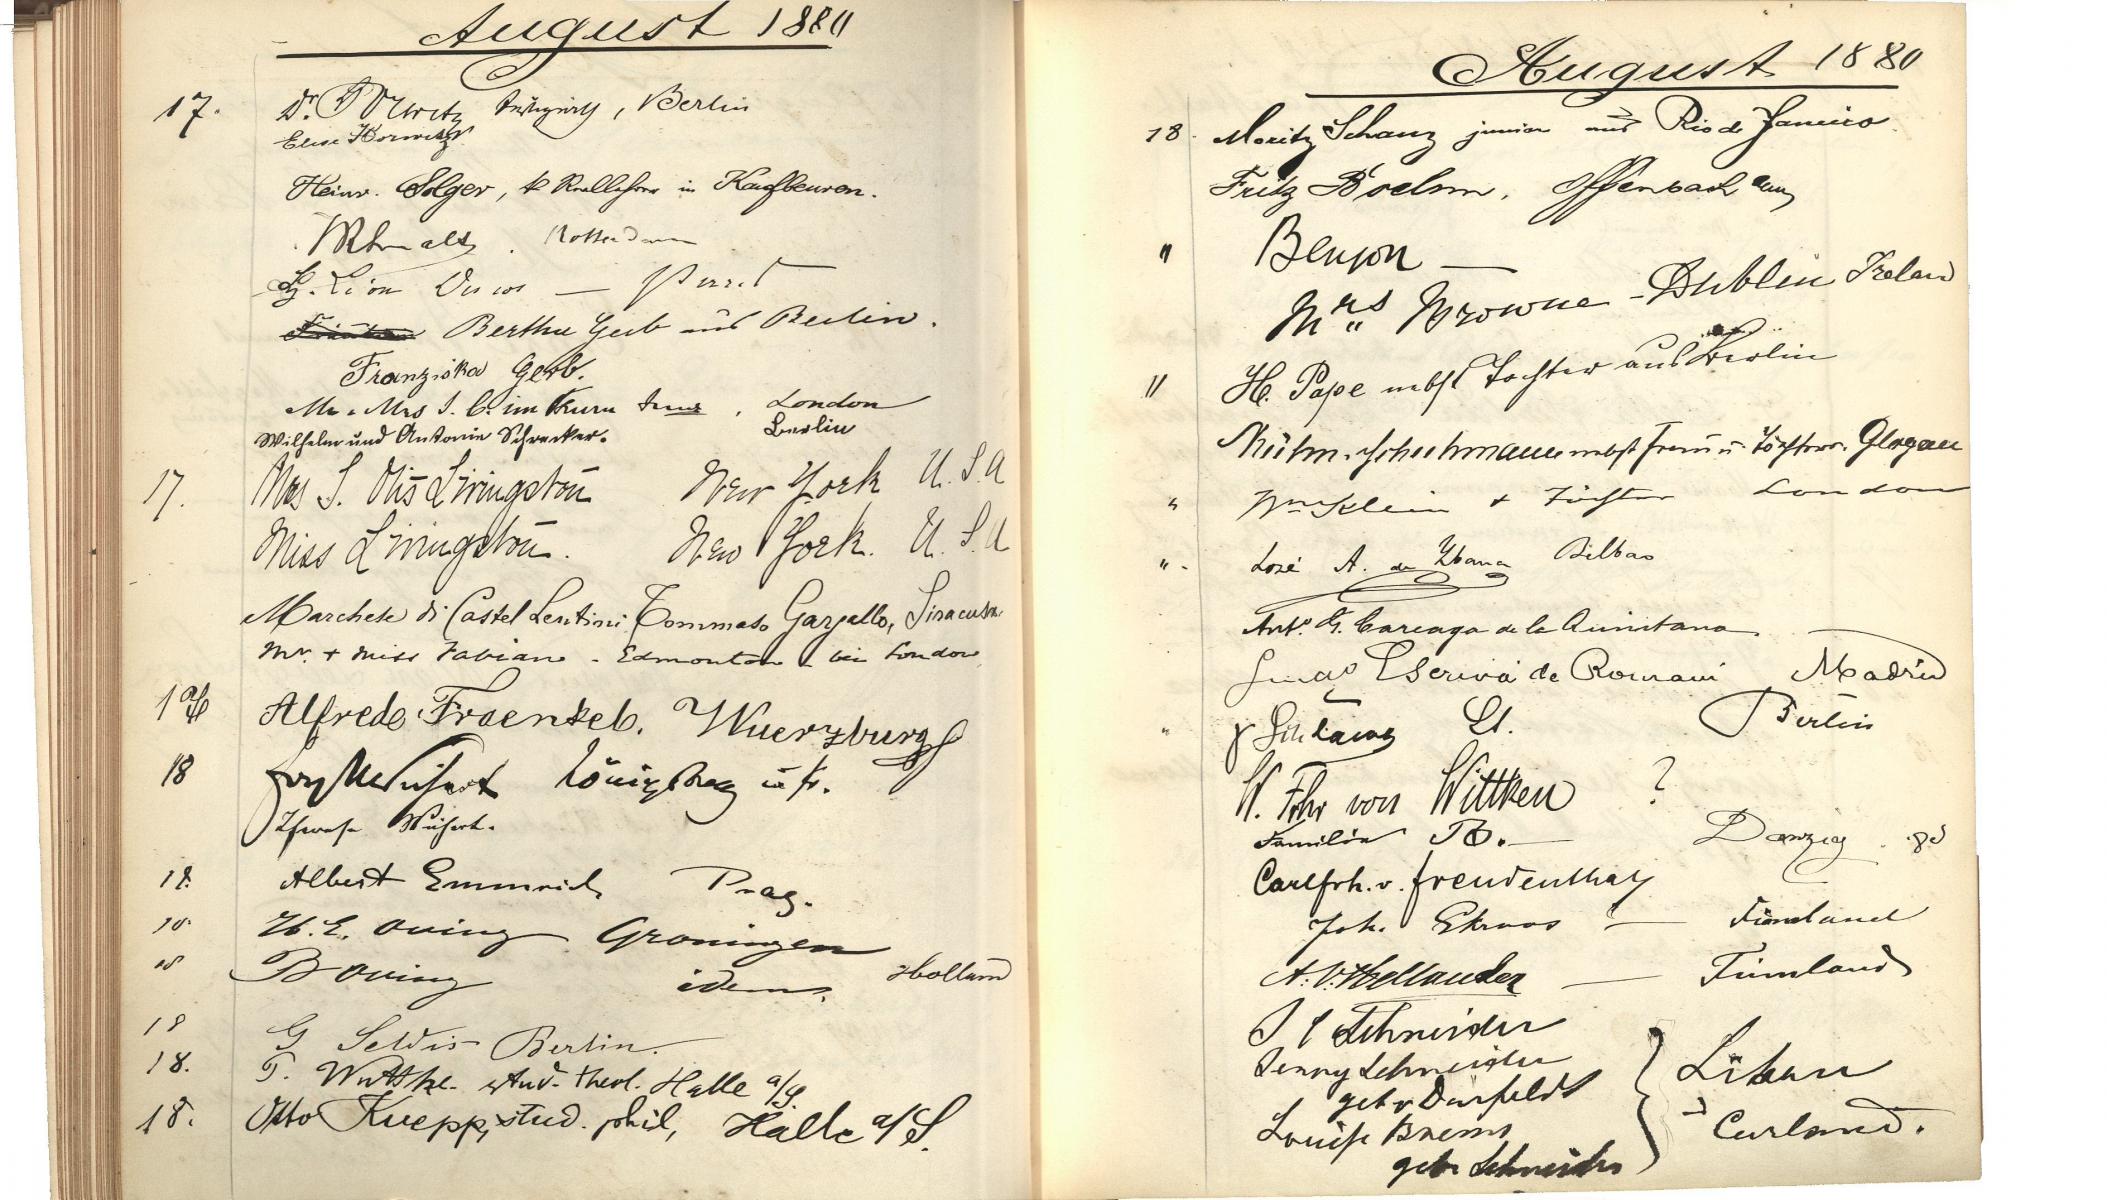 August 1880
17. Dr. Berlin
Elise Horwitz
Heinr. Solger, in Kaufbeuren.
Rotterdam
Léon
Bertha Gerb aus Berlin.
Franziska Gerb.
Mr & Mrs J. C. im Thurn London
Wilhelm und Antonie Schrecker. Berlin
17. Mrs S. Otis Livingston New York U.S.A
Miss Livingston. New York. U.S.A
Marchese di Castel Lentini Tommaso Gargallo, Siracusa.
Mr. + Miss Fabian - Edmonton - bei London
Alfredo Fraenkel. Wuerzburg
18 Wichert Königsberg i/Pr.
Wichert.
18. Albert Emmrich Prag.
18. H. E. Oving Groningen
18 B Oving idem. Holland
18 G Seldis Berlin.
18. T. stud. theol. Halle a/S.
18. Otto Kuepp, stud. phil, Halle a/S.
August 1880
18. Moritz Schanz junior aus Rio de Janeiro.
Fritz Boehm. Offenbach
" Benyon —
Mrs Browne - Dublin Ireland
" H. Pape nebst Tochter aus Berlin
nebst Frau u. Töchter. Glogau
" Wm Klein + Töchter London
" José A. de Ybarra Bilbao
Anto. G. Careaga de la Quintana
Escrivá de Romani Madrid
" Lt. Berlin
W. Frhr von Wittken ?
Familie B. — Danzig.
Carl Frh. v. Freudenthal
Joh. Ekroos — Finnland
A. V. Hellander — Finnland
Schneider
Jenny Schneider
geb v Dürfeldt
Louise Brems
geb. Schneider
Libau
Curland.